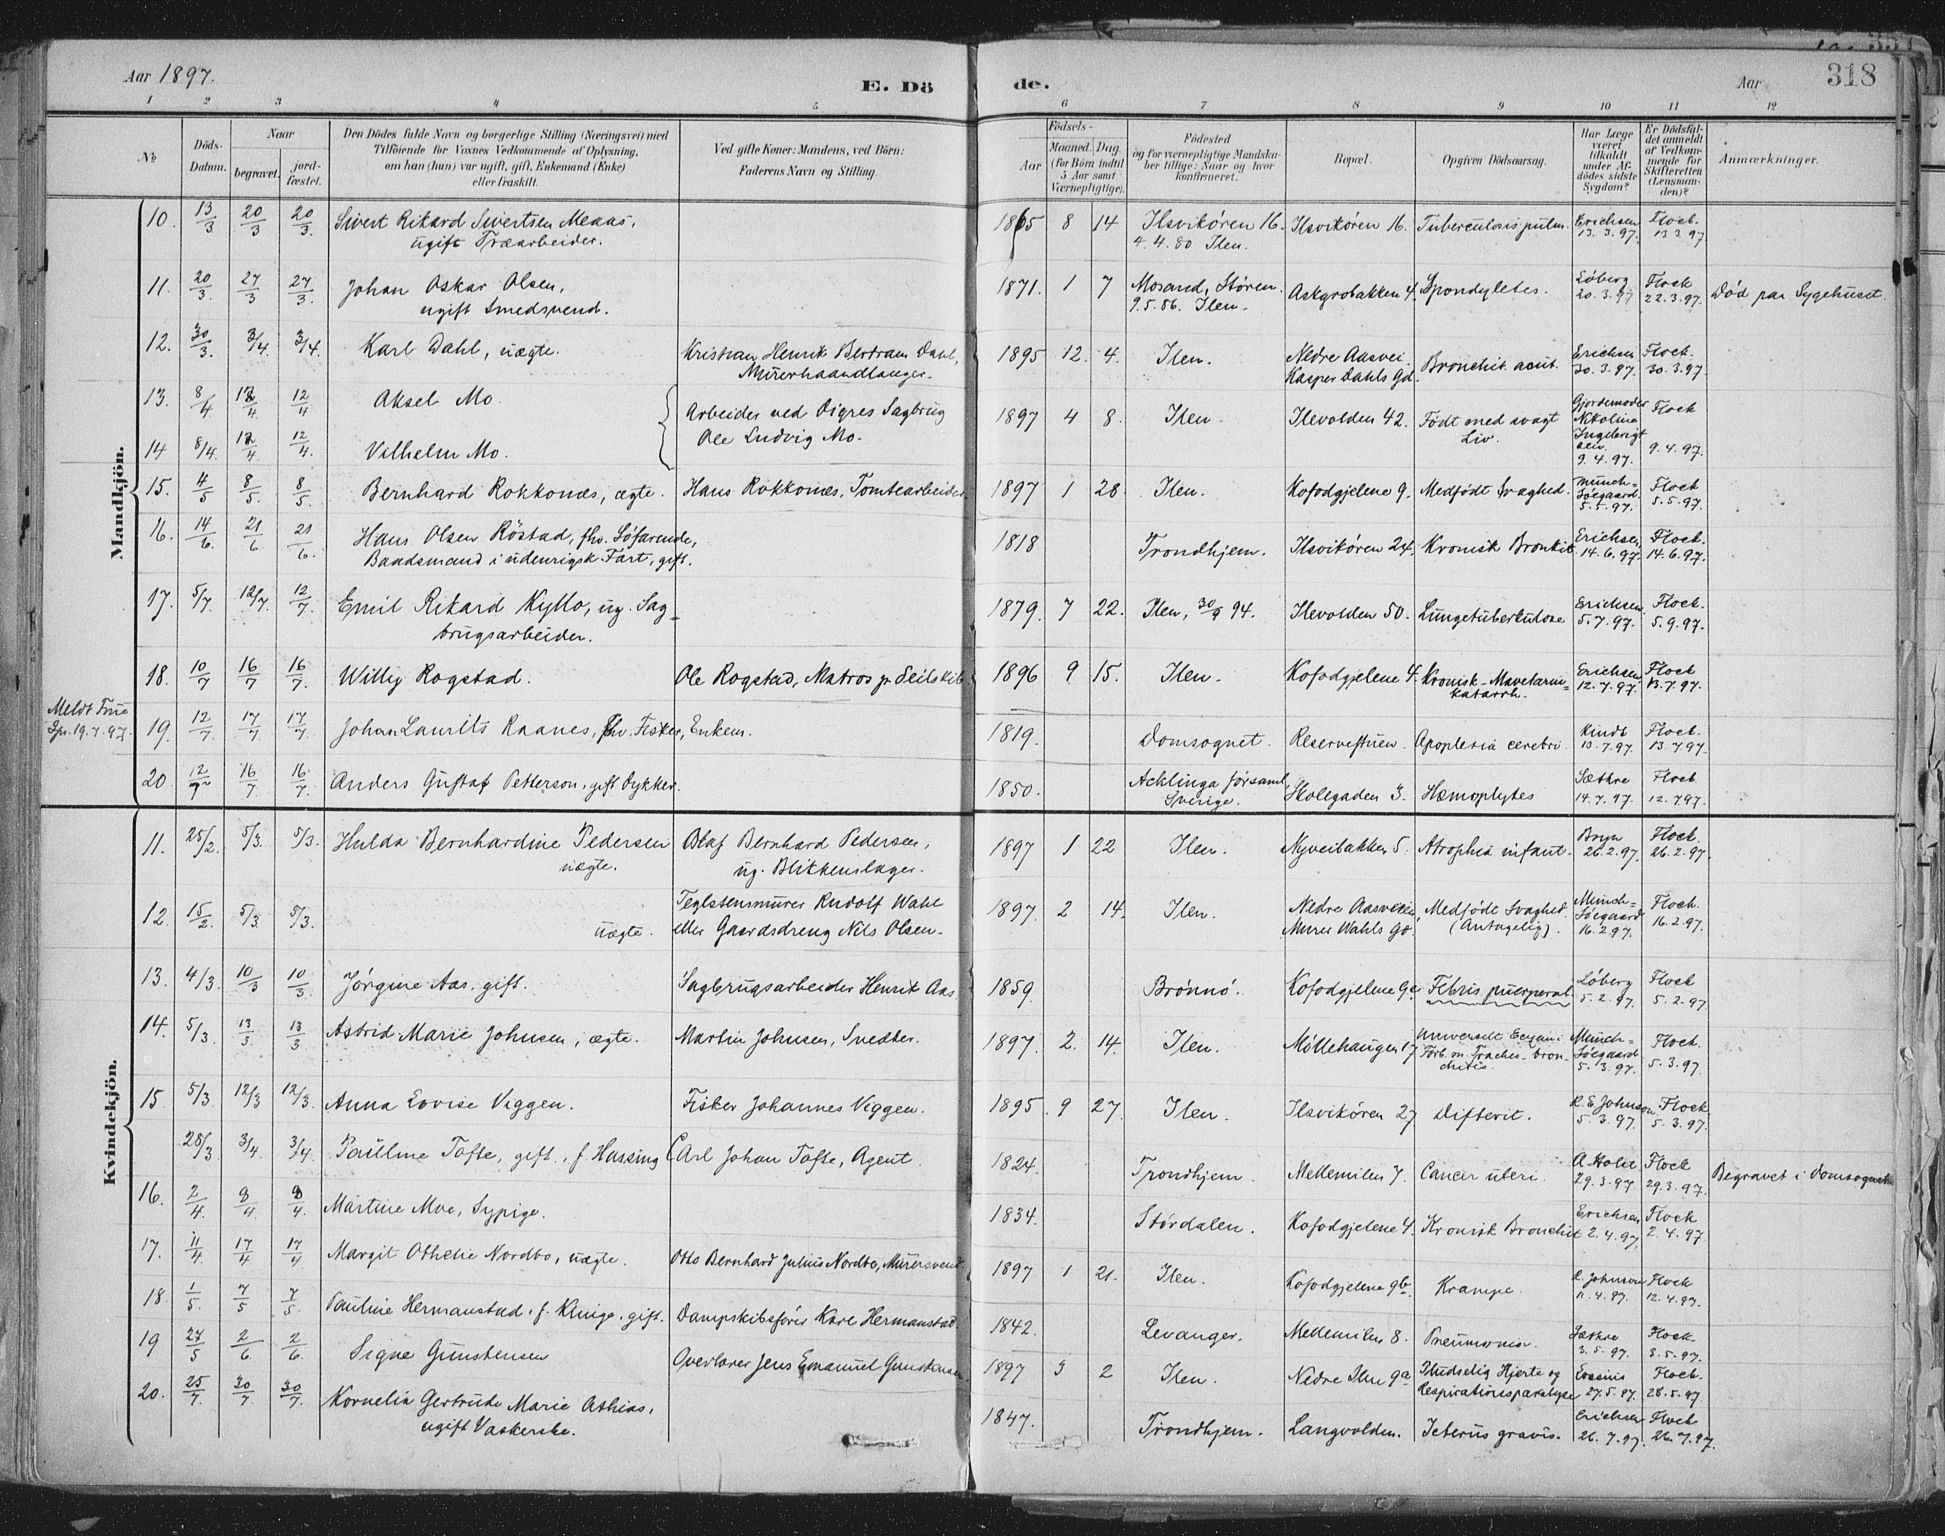 Aar 1897. E. Dö de. Aar 318
1 2 3 4 5 6 7 8 9 10 11 12
No Döds-Datum. Naar begravet. jord-fæstet. Den Dödes fulde Navn og borgerlige Stilling (Næringsvei) med Tilföiende for Voxnes Vedkommende af Oplysning, om han (hun) var ugift, gift, Enkemand (Enke) eller fraskilt. Ved gifte Koner: Mandens, ved Börn: Faderens Navn og Stilling. Födsels- Aar Maaned. Dag (for Börn indtil 5 Aar samt Værnepligtige). Födested og for værnepligtige Mandskaber tillige: Naar og hvor konfirmeret. Bopæl. Opgiven Dödsaarsag. Har Læge været tilkaldt under Afdödes sidste Sygdom? Er Dödsfaldet anmeldt af Vedkommende for Skifteretten (Lensmanden)? Anmærkninger.
Mandkjön.
10. 13/3 20/3 20/3. Sivert Rikard Sivertsen Meaas, 1865 8 14 Ilsvikören 16. Ilsvikören 16. Tuberculosis pulm. Erichsen 13.3.97. Flock. 13.3.97
ugift Træarbeider. 4.4.80 Ilen.
11. 20/3. 27/3 27/3. Johan Oskar Olsen, 1871. 1 7 Mosand, Støren. Spondylites. Løberg 20.3.97 Flock 22.3.97. Død paa Sygehuset.
ugift Smedsvend. 9.5.86. Ilen.
12. 30/3. 3/4. 3/4. Karl Dahl, uægte. Kristian Henrik Bertram Dahl, 1895 12. 4. Ilen. Nedre Aasvei Bronchit. acut. Erichsen 30.3.97. Flock. 30.3.97.
Murerhaandlanger. Kasper Dahls Gd.
13. 8/4 12/4 12/4 Aksel Mo. Arbeider ved Digres Sagbrug 1897 4 8. Ilen. Ilevolden 42. Født med svagt Gjordemoder Nikolina 9.4.97. Flock 9.4.97.
14 8/4. 12/4 12/4. Vilhelm Mo. Ole Ludvig Mo. Liv.
15. 4/5 8/5 8/5. Bernhard Rokkones, ægte. Hans Rokkones, Tomtearbeider. 1897 1 28. Ilen. Kofodgjelene 9. Medfødt Svaghed. Münch-Søegaard. 5.5.97. Flock 5.5.97.
16. 14/6 21/6 21/6. Hans Olsen Röstad, fhv. Søfarende, 1818 Trondhjem. Ilsvikören 24. Kronisk Bronkit Erichsen 14.6.97. Flock. 14.6.97.
Baadsmand i udenrigsk Fart, gift.
17. 5/7 12/7. 12/7 Emil Rikard Kyllo, ug. Sag- 1879. 7 22. Ilen, 30/9 94. Ilevolden 50. Lungetuberkulose Erichsen. 5.7.97. Flock. 5.9.97.
brugsarbeider.
18. 10/7 16/7 16/7. Willy Rogstad. Ole Rogstad, Matros pr. Seilskib. 1896 9 15. Ilen. Kofodgjelene 4. Kronisk Mavetarm- Erichsen 12.7.97. Flock 13.7.97.
katarrh.
19. 12/7. 17/7 17/7 Johan Laurits Raanes, fhv. Fisker, Enkem. 1819. Domsognet. Reservestuen. Apoplexia cerebri. Kindt 13.7.97. Flock. 13.7.97.
20. 12/7 16/7 16/7. Anders Gustaf Petterson, gift Dykker. 1850. Acklinga församl. Skolegaden 3. Hæmoplytes Sæthre 14.7.97. Flock 12.7.97.
Sverige.
Kvindekjön.
11. 25/2. 5/3. 5/3. Hulda Bernhardine Pedersen Olaf Bernhard Pedersen, 1897 1 22 Ilen. Nyveibakken 5. Atrophia infant. Bryn 26.2.97. Flock. 26.2.97.
uægte. ug. Blikkenslager.
12. 15/2. 5/3. 5/3. Teglstensmurer Rudolf Wahl 1897. 2 14. Ilen. Nedre Aasveien, Medfødt Svaghed. Münch-Søegaard 16.2.97. Flock. 16.2.97.
uægte. eller Gaardsdreng Nils Olsen. Murer Wahls Gd. (Antagelig).
13. 4/3. 10/3 10/3. Jørgine Aas. gift. Sagbrugsarbeider Henrik Aas. 1859. Brønnö. Kofodgjelene 9a Febris puerperal. Løberg 5.2.97. Flock 5.2.97
14. 5/3. 13/3 13/3 Astrid Marie Johnsen, ægte. Martin Johnsen, Snedker. 1897. 2. 14. Ilen. Møllehaugen 17 Universelt Eczem i Forb. m. Tracheo-bronchitis. Münch-Søegaard 5.3.97. Flock. 5.3.97.
15 5/3. 12/3 12/3. Anna Lovise Viggen. Fisker Johannes Viggen. 1895. 9 27. Ilen. Ilsvikören 27 Difterit. R. E. Johnson 5.3.97. Flock 5.3.97.
28/3 3/4 3/4. Pauline Tofte, gift, f. Hassing Carl Johan Tofte, Agent. 1824. Trondhjem. Mellemilen 7. Cancer uteri. 29.3.97. Flock 29.3.97. Begravet i Domsognet
16. 2/4 8/4 8/4. Martine Moe, Sypige. 1834. Størdalen. Kofodgjelene 4. Kronisk Bronchit Erichsen 2.4.97. Flock 2.4.97.
17. 11/4 17/4 17/4 Margit Othelie Nordbo, uægte. Otto Bernhard Julius Nordbo, Murersvend 1897 1 21. Ilen. Kofodgjelene 9b. Krampe. Johnson 11.4.97. Flock 12.4.97.
18. 1/5. 7/5 7/5. Pauline Hermanstad, f. Klinge, gift. Dampskibsfører Karl Hermanstad. 1842. Levanger. Mellemilen 8. Pneumonia. Sæthre 3.5.97. Flock 3.5.97.
19 27/5 2/6 2/6. Signe Gunstensen Overlærer Jens Emanuel Gunstensen. 1897 3 2 Ilen. Nedre Ilen 9a Pludselig Hjerte og Respirationsparalyse 27.5.97. Flock. 28.5.97
20. 25/7. 30/7. 30/7. Kornelia Gertrude Marie Athias, 1847. Trondhjem. Langvolden. Icterus gravis. Erichsen 26.7.97. Flock 26.7.97.
ugift Vaskerske.